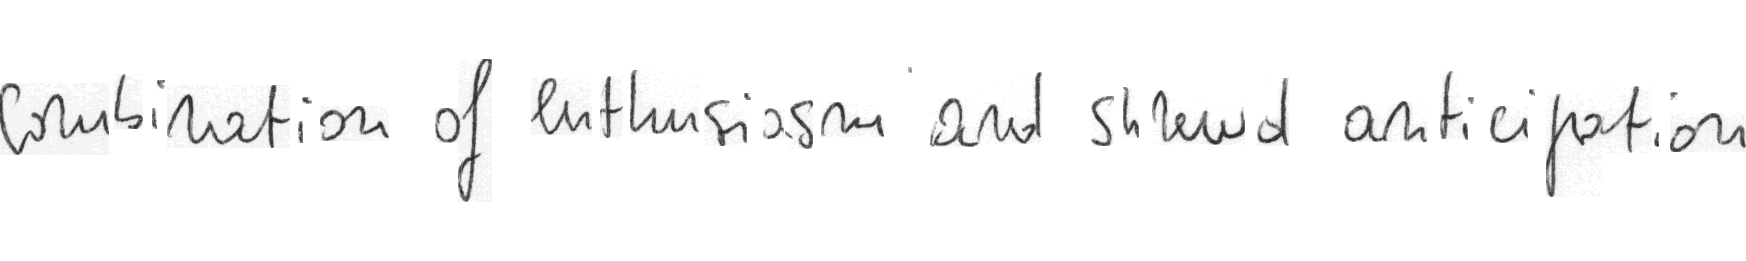 combination of enthusiasm and shrewd anticipation